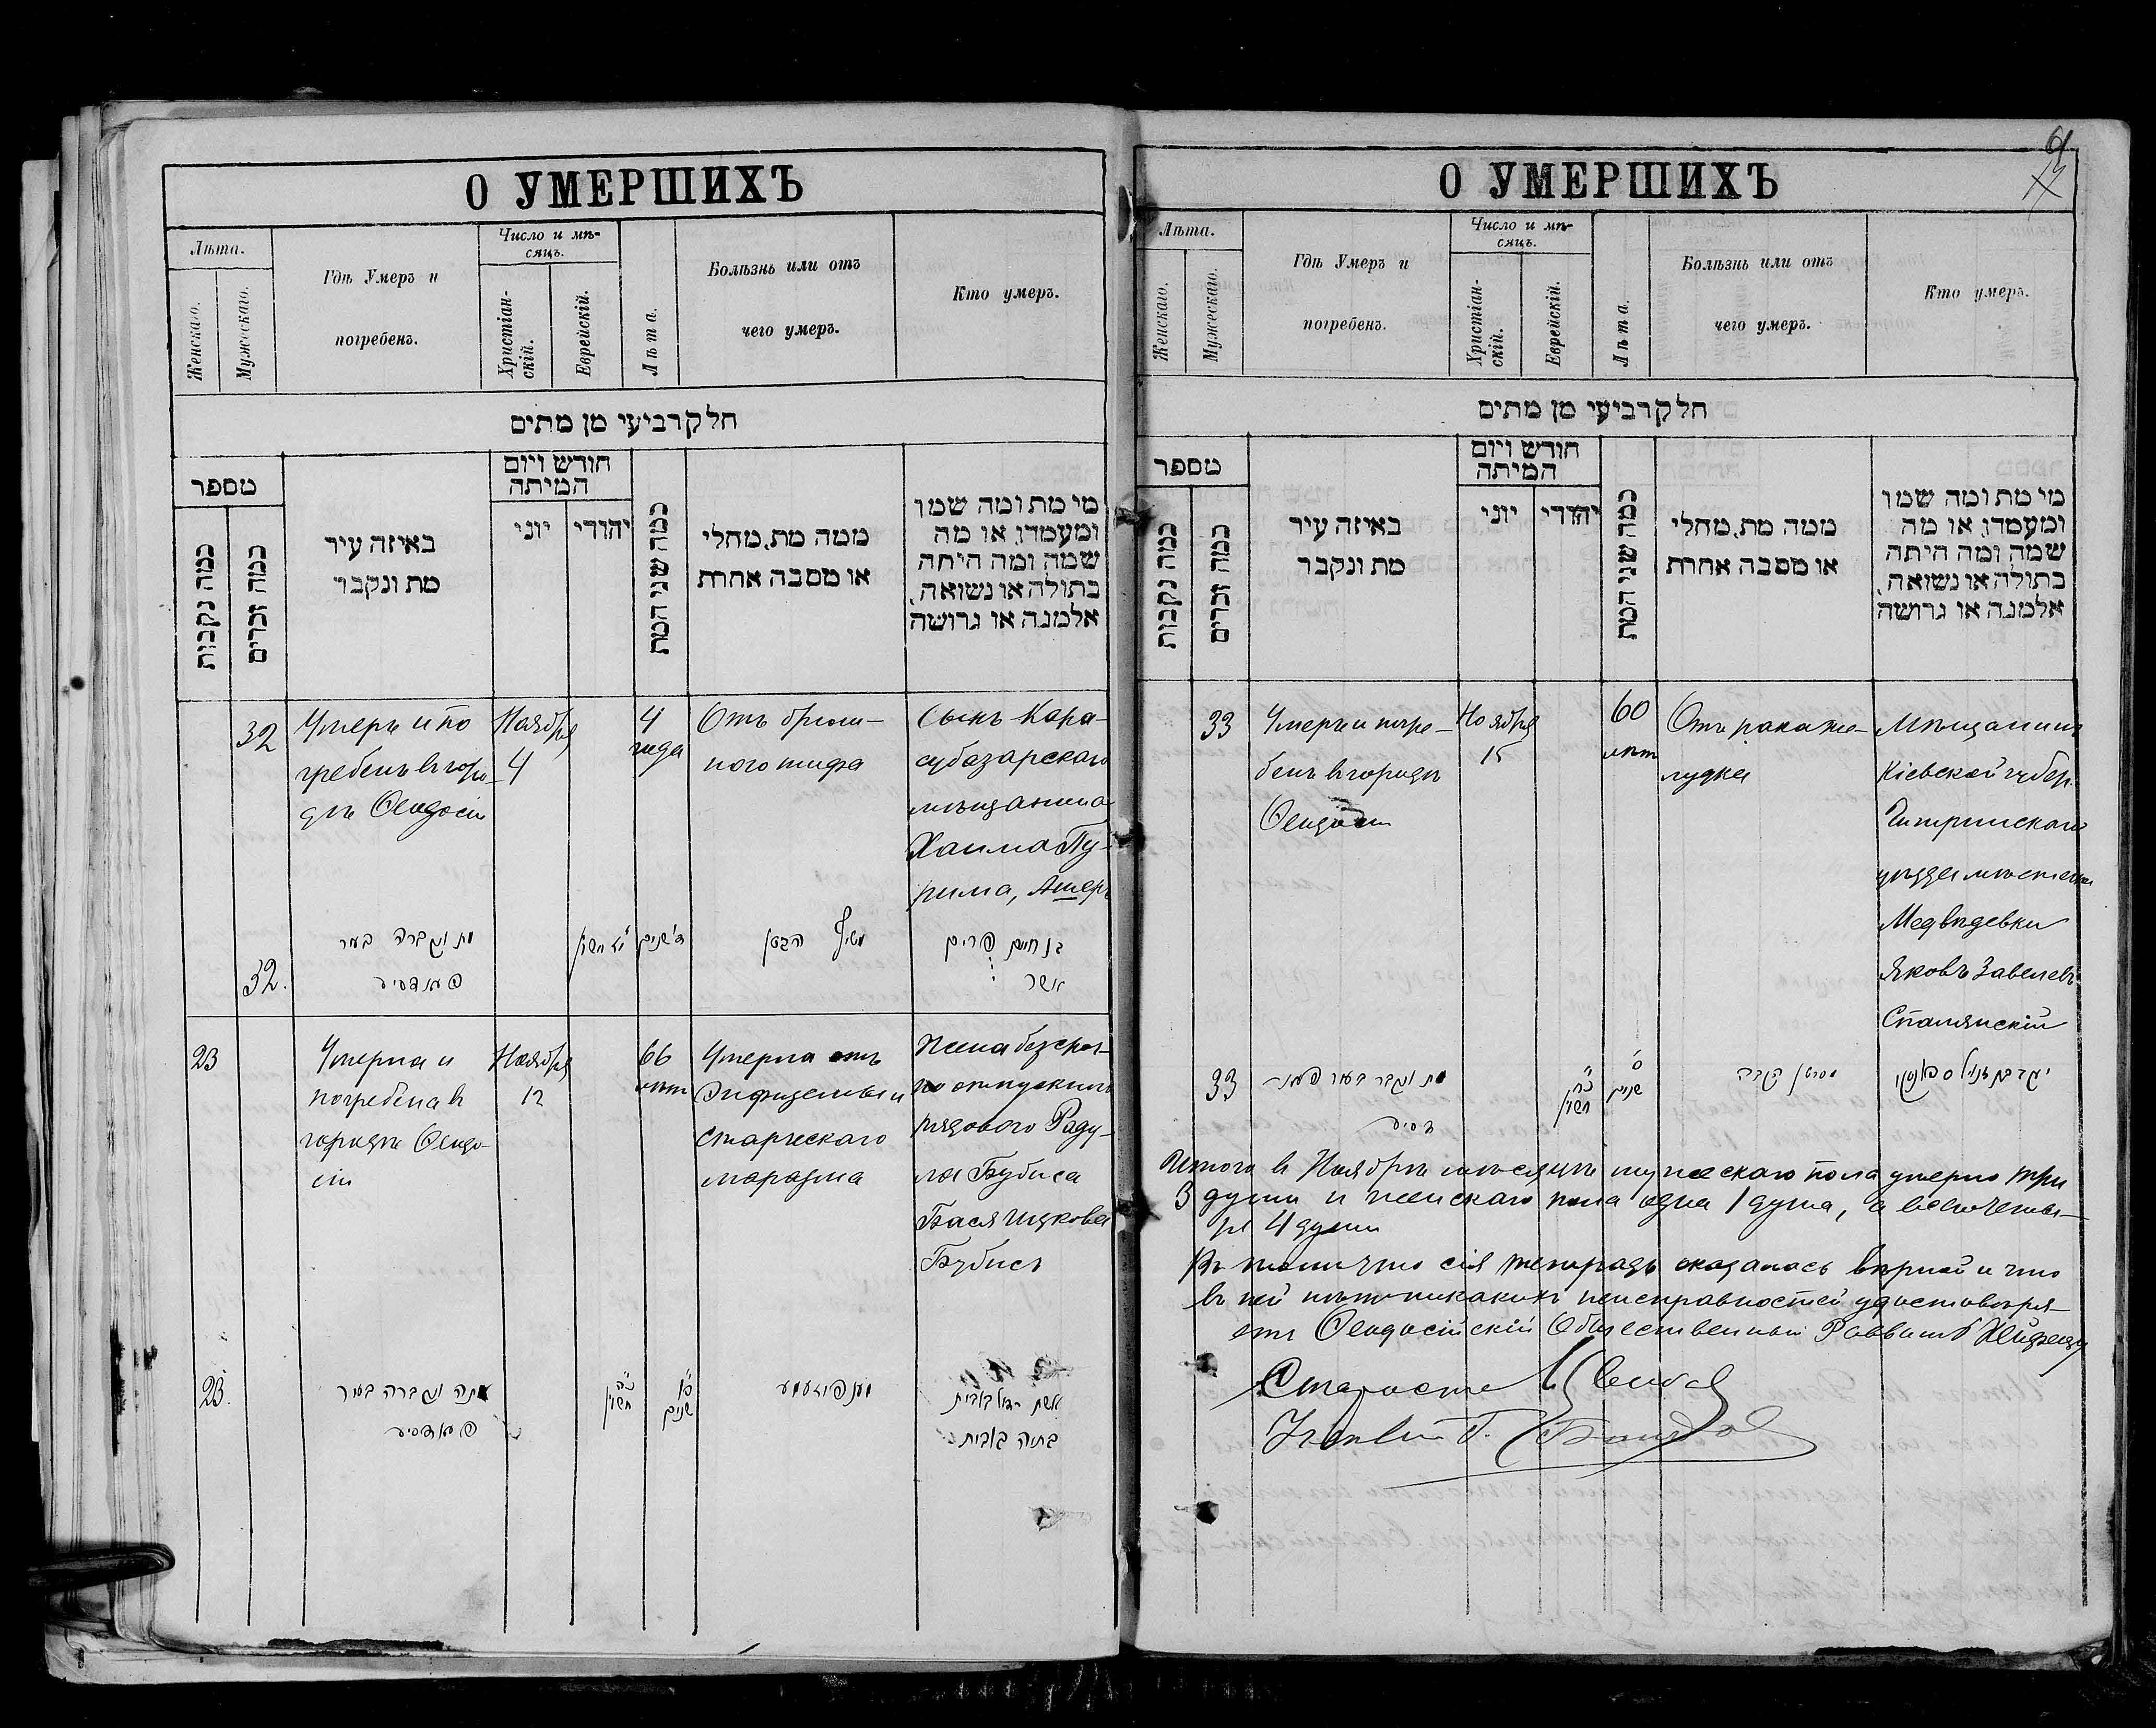 О УМЕРШИХЪ
Лѣта.
Женскаго.
Мужескаго.
Гдѣ Умеръ и
погребенъ.
Число и мѣ-
сяцъ.
Христіан-
скій.
Еврейскій.
Лѣта.
Болѣзнь или отъ
чего умеръ.
Кто умеръ.
חלק רביעי מן מתים
מספר
כמה נקבות
כמה זכרים
באיזה עיר
מת ונקבר
חודש ויום
המיתה
יוני
יהודי
כמה שני המת
ממה מת, מחלי
או מסבה אחרת
מי מת ומה שמו
ומעמדו, או מה
שמה ומה היתה
בתולה או נשואה,
אלמנה או גרושה
32
Умеръ и по
гребенъ в горо-
дѣ Ѳеодосіи
Ноября
4
4
года
Отъ брюш-
ного тифа
Сынъ Кара-
субазарскаго
мѣщанина
Хаима Пу-
рима, Ашеръ
32.
הבטן
בן חיים פורים
אשר
23
Умерла и
погребена в
городѣ Ѳеодо-
сіи
Ноября
12
66
лѣт
Умерла отъ
Энфиземы и
старческаго
маразма
Жена безсроч-
но отпускного
рядового Раду-
ла Бубиса
Бася Ицкова
Бубисъ
23.
מתה ונקברה בעיר
חשון
שנים
О УМЕРШИХЪ
Лѣта.
Женскаго.
Мужескаго.
Гдѣ Умеръ и
погребенъ.
Число и мѣ-
сяцъ.
Христіан-
скій.
Еврейскій.
Лѣта.
Болѣзнь или отъ
чего умеръ.
Кто умеръ.
חלק רביעי מן מתים
מספר
כמה נקבות
כמה זכרים
באיזה עיר
מת ונקבר
חודש ויום
המיתה
יוני
יהודי
כמה שני המת
ממה מת, מחלי
או מסבה אחרת
מי מת ומה שמו
ומעמדו, או מה
שמה ומה היתה
בתולה או נשואה,
אלמנה או גרושה
33
Умеръ и погре-
бенъ в городѣ
Ѳеодосіи
Ноября
15
60
лѣт
Отъ рака же-
лудка
Мѣщанинъ
Кіевской губер.
Чигиринскаго
уѣзда мѣстечка
Медвѣдевки
Яковъ Завелевъ
Сполянскій
33
מת ונקבר בעיר
חשון
שנים
Итого в Ноябрѣ мѣсяцѣ мужескаго пола умерло три
3 души и женскаго пола одна 1 душа, а всего четы-
ре 4 души
Въ томъ что сія тетрадь оказалась вѣрной и что
въ ней нѣтъ никакихъ неисправностей удостовѣря-
етъ Ѳеодосійскій Общественный Раввинъ
Староста